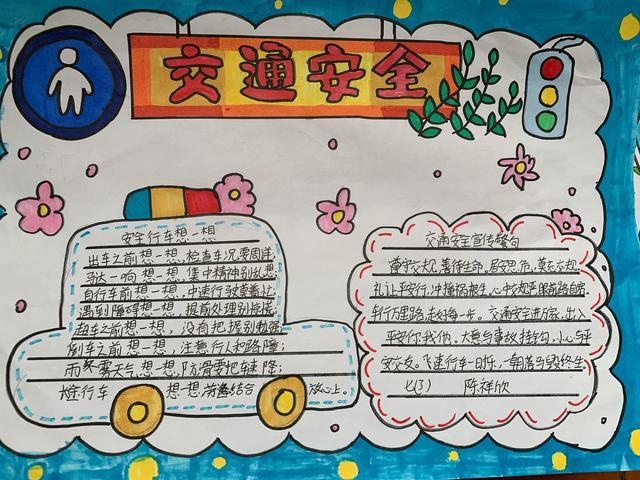 交通安全
安全行车想一想
出车之前想一想,检查车况要周详;
马达一响想一想,集中精神别乱想;
自行车前想一想,中速行驶莫着忙
遇到障碍想一想,提前处理别慌张
超车之前想一想,没有把握别勉强
倒车之前想一想,注意行人和路障;
雨冬雾天气想一想,防滑要把车速降;
行车想一想,结合放心上。
交通安全宣传警句
遵守交规,善待生命。居安思危,莫忘交规
礼让平安行,冲撞祸根生。心中交规严,眼前路自宽
车行万里路,走好每一步。交通安全进万家,出入
平安你我他。大意与事故挂钩,小心与平
安交友。飞速行车一日乐,一朝落马毁终生。
七(3) 陈祥欣